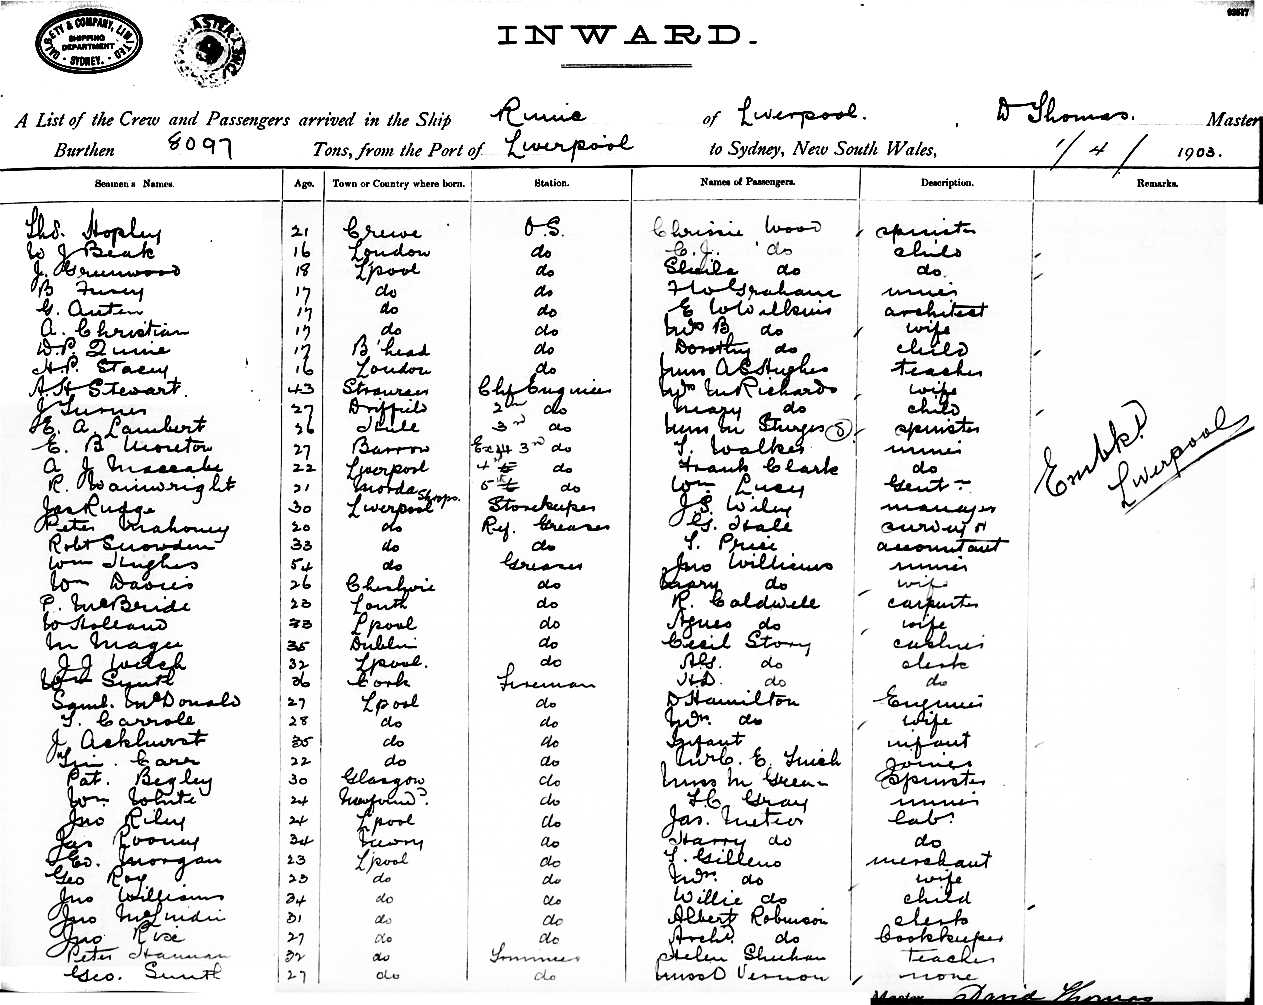 03527
DALGETY & COMPANY, LIMITED
SHIPPING DEPARTMENT
SYDNEY.
INWARD.
A List of the Crew and Passengers arrived in the Ship Runic of Liverpool. D Thomas. Master
Burthen 8097 Tons, from the Port of Liverpool to Sydney, New South Wales, 1/4/ 1903.
Seamens Names. Age. Town or Country where born. Station. Names of Passengers. Description. Remarks.
Thos. Hopley 21 Crewe O.S. Chrissie Wood spinster
W J Beak 16 London do C. J. do child
J. Greenwood 18 Lpool do Sheila do do.
B Furey 17 do do Graham miner
G. Auten 17 do do E W Wilkins architect
A. Christian 17 do do Mrs B do wife
W.P. Quine 17 B'head do Dorothy do child
H.P. Stacey 16 London do Miss A E Hughes teacher
A.H. Stewart. 43 Stranraer Chf Engineer Mrs M Richards wife
J Turner 27 Driffield 2nd do Mary do child
E. A. Lambert 26 Hull 3rd do Miss M Sturges (S) spinster
E. B Moreton 27 Barrow Ex 3rd do T. Walker miner
A J Maccabe 22 Liverpool 4th do Frank Clark do
R. Wainwright 21 Morda Shrops. 5th do Wm Lucy Gent
Jas Rudge 30 Liverpool Storekeeper J.S. Wiley manager
Peter Mahoney 20 do Rf. Greaser G. Hale surveyor
Robt Snowden 33 do do T. Price accountant
Wm Hughes 54 do Greaser Jno Williams miner
Wm Davies 26 Cheshire do Mary do wife
P. McBride 23 Louth do R. Caldwell carpenter
W Holland 33 Lpool do Agnes do wife
M Magee 35 Dublin do Cecil Story cashier
J J Welch 32 Lpool. do Alf. do clerk
Wm Smith 36 Cork Fireman H.D. do do
Saml. McDonald 27 Lpool do D Hamilton Engineer
T. Carroll 28 do do Mrs. do wife
J Ackhurst 35 do do Infant infant
Carr 22 do do E. Finch Joiner
Pat. Begley 30 Glasgow do Miss M Green Spinster
Wm White 24 Newfound. do Gray miner
Jno Riley 24 Lpool do Jas. Meteor Labr
Jas Rooney 34 Newry do Harry do do
Ed. Morgan 23 Lpool do T. Gillens merchant
Geo Roy 23 do do Mrs. do wife
Jno Williams 34 do do Willie do child
Jno 31 do do Albert Robinson clerk
Jno Rice 27 do do Archd. do bookkeeper
Peter Hannan 32 do Trimmer Helen Sheehan teacher
Geo. Smith 27 do do Miss D Vernon none
Embkd Liverpool
Master David Thomas